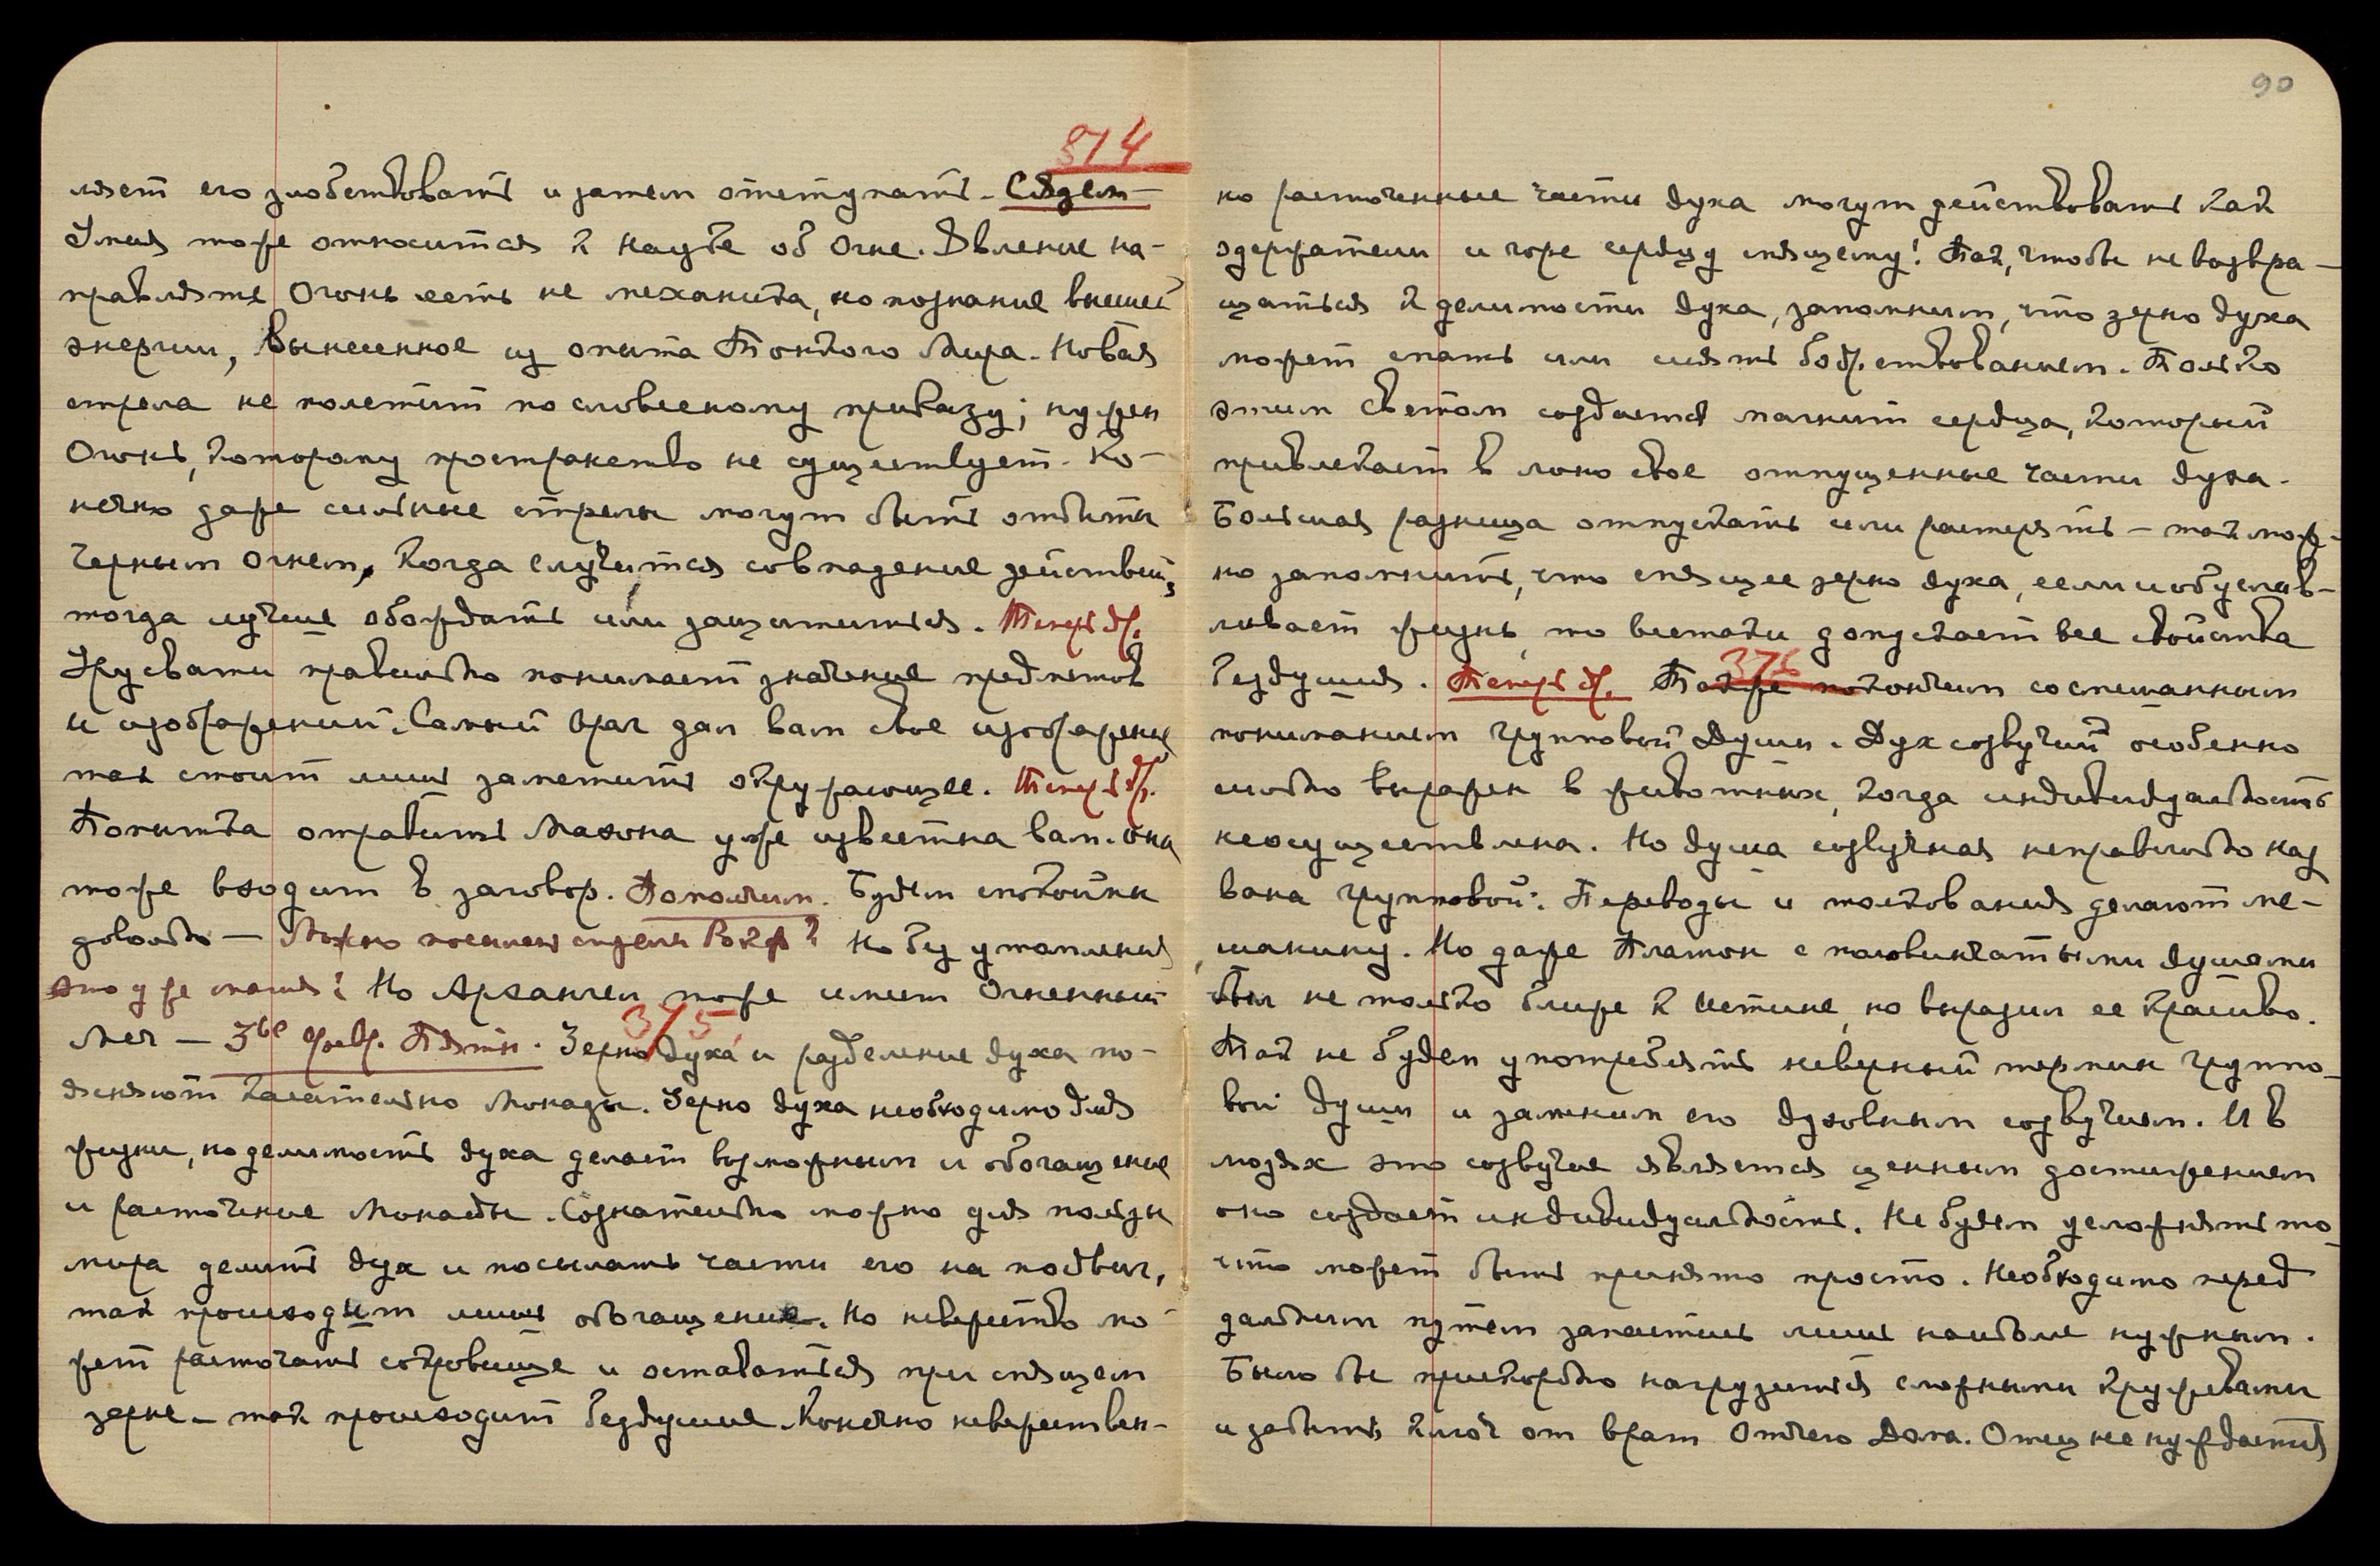 374
ляет его злобствовать и затем отступать. Следом-
Умия тоже относится к науке об Огне. Явление на-
правлять Огонь есть не механика, но познание высшей
энергии, вынесенное из опыта Тонкого Мира. Новая
стрела не полетит по словесному приказу; нужен
Огонь, которому пространство не существует. Ко-
нечно даже сильные стрелы могут быть отбиты
черным огнем. Когда случится совпадение действий,
тогда лучше обождать или защититься. Перерыв.
Урусвати правильно понимает значение предметов
и изображений. Самый враг дал вам свое изображение
так стоит лишь заметить окружающее. Перерыв.
Попытка отравить Мазона уже известна вам. Она
тоже входит в заговор. Помолчим. Будем спокойны
довольно — Можно посылать стрелы 
это уже наше? Но Архангел тоже имеет Огненный
Меч — 3ье февр. Пятн. 375 Зерно духа и разделение духа по-
ясняют касательно Монады. Зерно духа необходимо для
жизни, но делимость духа делает возможным и обогащение
и расточение Монады. Сознательно можно для пользы
мира делить дух и посылать части его на подвиг,
так происходит лишь обогащение. Но невежество мо-
жет расточать сокровище и оставаться при спящем
зерне — так происходит бездушие. Конечно невежествен-
90
но расточенные части духа могут действовать как
одержатели и горе сердцу спящему! Так, чтобы не возвра-
щаться к делимости духа, запомним, что зерно духа
может спать или сиять бодрствованием. Только
этим светом создается магнит сердца, который
привлекает в лоно свое отпущенные части духа.
Большая разница отпускать или растерять — так мож-
но запомнить, что спящее зерно духа, если и обуслав-
ливает жизнь, то все-таки допускает все свойства
бездушия. Перерыв. 376 Также покончим со смешанным
пониманием групповой Души. Дух созвучий особенно
сильно выражен в животных, когда индивидуальность
неосуществлена. Но душа созвучная неправильно наз
вана групповой. Переводы и толкования делают ме-
шанину. Но даже Платон с половинчатыми душами
был не только ближе к Истине, но выразил ее красиво.
Так не будем употреблять неверный термин группо-
вой души и заменим его духовным созвучием. И в
людях это созвучие является ценным достижением
оно создает индивидуальность. Не будем усложнять то
что может быть принято просто. Необходимо перед
дальним путем запастись лишь наиболее нужным.
Было бы прискорбно нагрузиться сложными кружевами
и забыть ключ от врат Отчего Дома. Отец не нуждается